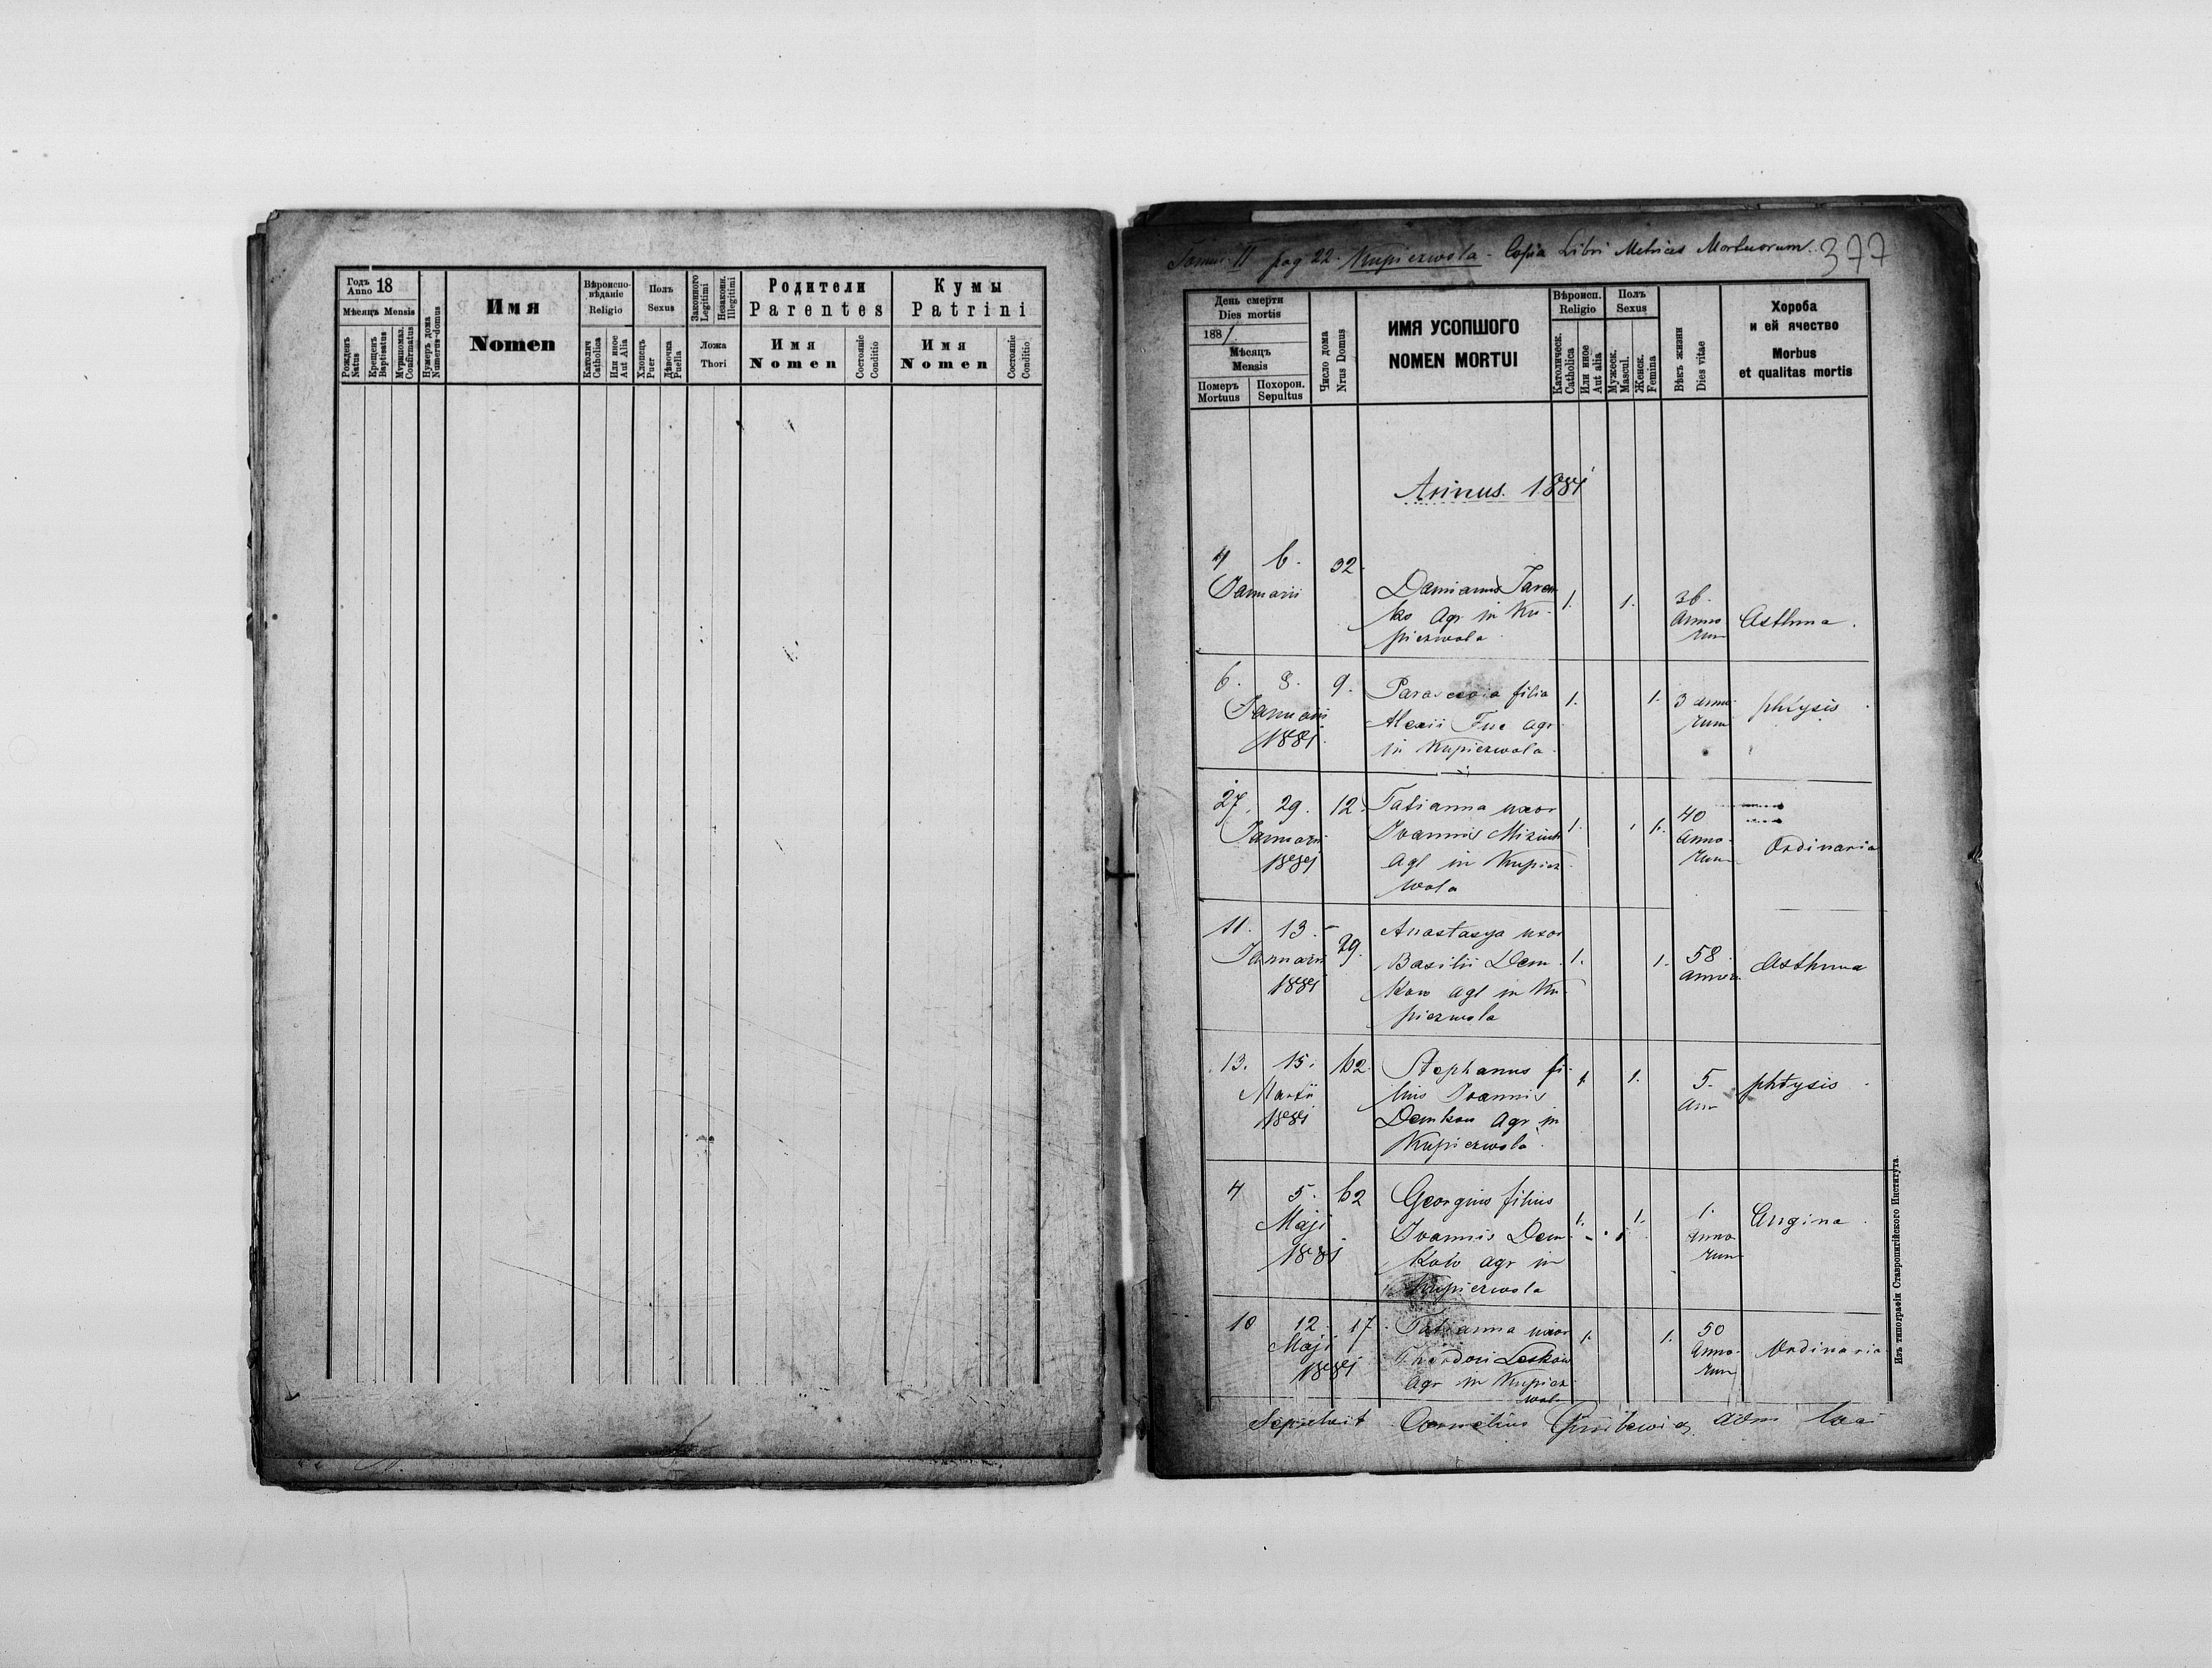 Годъ Anno 18
Мѣсяцъ Mensis
Рожденъ Natus
Крещенъ Baptisatus
Мѵропомаз. Confirmatus
Нумеръ дома Numerus domus
Имя
Nomen
Вѣроиспо-
вѣданіе
Religio
Католич Catholica
Или иное Aut Alia
Полъ
Sexus
Хлопецъ Puer
Дѣвочка Puella
Законного Legitimi
Незаконн. Illegitimi
Ложа
Thori
Родители
Parentes
Имя
Nomen
Состояніе Conditio
Кумы
Patrini
Имя
Nomen
Состояніе Conditio
Tomus II pag 22. Kupiczwola - Copia Libri Metrices Mortuorum. 377
День смерти
Dies mortis
1881
Мѣсяцъ
Mensis
Померъ Mortuus
Похорон. Sepultus
Число дома Nrus Domus
ИМЯ УСОПШОГО
NOMEN MORTUI
Вѣроисп.
Religio
Католическ. Catholica
Или иное Aut alia
Полъ
Sexus
Мужеск. Mascul.
Женск. Femina
Вѣкъ жизни Dies vitae
Хороба
и ей ячество
Morbus
et qualitas mortis
Annus. 1881
4 6. 32.
Januarii
Damianus
ko agr in Ku-
piczwola
1. 1.
36.
anno
rum
Asthma.
6. 8. 9.
Januarii
1881.
Parascevia filia
Alexii agr
in Kupiczwola
1. 1.
3 anno
rum
phtysis
27. 29. 12.
Januarii
1881
Tatianna uxor
Joannis
agl in Kupicz
wola
1. 1.
40
anno-
rum
Ordinaria
11. 13. 29.
Januarii
1881
Anastasya uxor
Basilii Dem
kow agl in Ku-
piczwola
1. 1.
58
Asthma
13. 15. 62.
Martii
1881
Stephanus fi-
lius Joannis
Demkow agr in
Kupiczwola
1 1.
5.
ann
phtysis
4 5. 62
Maji
1881
Georgius filius
Joannis Dem
kow agr in
Kupiczwola
1. 1.
1.
anno
rum
Angina.
10 12 17.
Maji
1881
Tatianna uxor
Theodori Leskow
agr in Kupicz
wola
1. 1.
50
anno-
rum
Ordinaria
Sepelivit Cornelius adm loci
Изъ типографіи Ставропигійского Института.